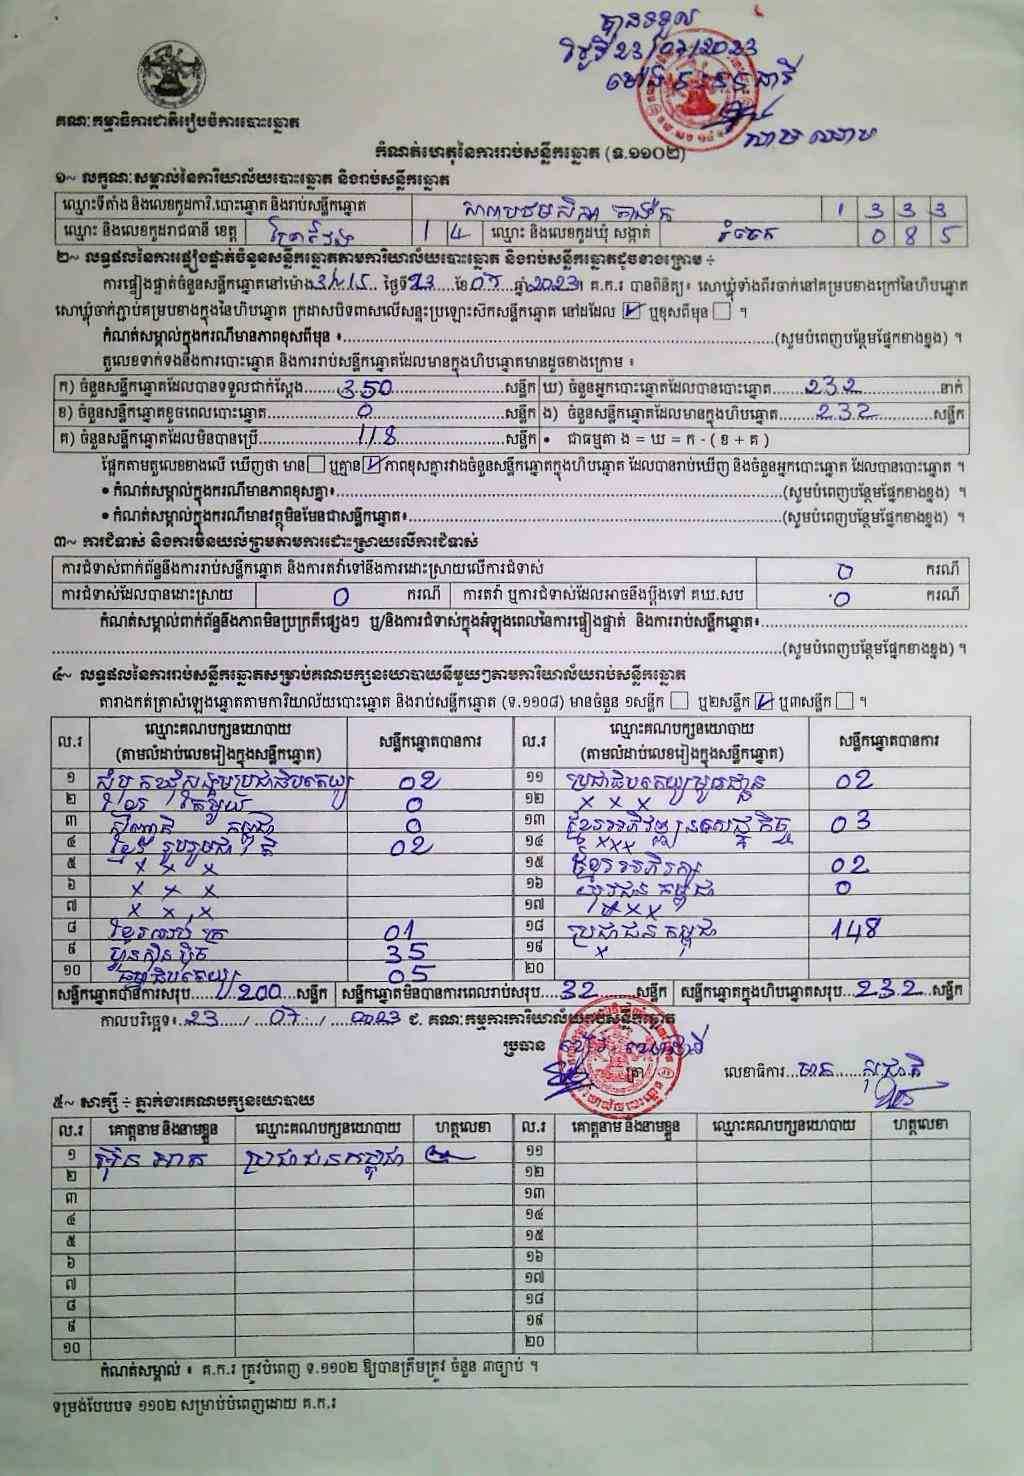 បានទទួល
ថ្ងៃទី23/07/2023
គណៈកម្មាធិការជាតិរៀបចំការបោះឆ្នោត
កំណត់ហេតុនៃការរាប់សន្លឹកឆ្នោត (ទ.១១០២)
១~ លក្ខណៈសម្គាល់នៃការិយាល័យបោះឆ្នោត និងរាប់សន្លឹកឆ្នោត
ឈ្មោះទីតាំង និងលេខកូដការិ.បោះឆ្នោត និងរាប់សន្លឹកឆ្នោត សាលាបឋមសិក្សា 1 3 3 3
ឈ្មោះ និងលេខកូដរាជធានី ខេត្ត ព្រៃវែង 1 4 ឈ្មោះ និងលេខកូដឃុំ សង្កាត់ រំចេក 0 8 5
២~ លទ្ធផលនៃការផ្ទៀងផ្ទាត់ចំនួនសន្លឹកឆ្នោតតាមការិយាល័យបោះឆ្នោត និងរាប់សន្លឹកឆ្នោតដូចខាងក្រោម ÷
ការផ្ទៀងផ្ទាត់ចំនួនសន្លឹកឆ្នោតនៅម៉ោង 3:15 ថ្ងៃទី 23 ខែ 07 ឆ្នាំ 2023។ គ.ក.រ បានពិនិត្យ៖ សោឃ្លុំទាំងពីរចាក់នៅគម្របខាងក្រៅនៃហិបឆ្នោត
សោឃ្លុំចាក់ភ្ជាប់គម្របខាងក្នុងនៃហិបឆ្នោត ក្រដាសបិទពាសលើសន្ទះប្រឡោះសឹកសន្លឹកឆ្នោត នៅដដែល ☑ ឬខុសពីមុន ☐ ។
កំណត់សម្គាល់ក្នុងករណីមានភាពខុសពីមុន ៖........(សូមបំពេញបន្ថែមផ្នែកខាងខ្នង) ។
តួលេខទាក់ទងនឹងការបោះឆ្នោត និងការរាប់សន្លឹកឆ្នោតដែលមានក្នុងហិបឆ្នោតមានដូចខាងក្រោម ៖
ក) ចំនួនសន្លឹកឆ្នោតដែលបានទទួលជាក់ស្តែង 350 សន្លឹក ឃ) ចំនួនអ្នកបោះឆ្នោតដែលបានបោះឆ្នោត 232 នាក់
ខ) ចំនួនសន្លឹកឆ្នោតខូចពេលបោះឆ្នោត 0 សន្លឹក ង) ចំនួនសន្លឹកឆ្នោតដែលមានក្នុងហិបឆ្នោត 232 សន្លឹក
គ) ចំនួនសន្លឹកឆ្នោតដែលមិនបានប្រើ 118 សន្លឹក • ជាធម្មតា ង = ឃ = ក - ( ខ + គ )
ផ្អែកតាមតួលេខខាងលើ ឃើញថា មាន ☐ ឬគ្មាន ☑ ភាពខុសគ្នារវាងចំនួនសន្លឹកឆ្នោតក្នុងហិបឆ្នោត ដែលបានរាប់ឃើញ និងចំនួនអ្នកបោះឆ្នោត ដែលបានបោះឆ្នោត ។
• កំណត់សម្គាល់ក្នុងករណីមានភាពខុសគ្នា៖........(សូមបំពេញបន្ថែមផ្នែកខាងខ្នង) ។
• កំណត់សម្គាល់ក្នុងករណីមានវត្ថុមិនមែនជាសន្លឹកឆ្នោត៖........(សូមបំពេញបន្ថែមផ្នែកខាងខ្នង) ។
៣~ ការជំទាស់ និងការមិនយល់ព្រមតាមការដោះស្រាយលើការជំទាស់
ការជំទាស់ពាក់ព័ន្ធនឹងការរាប់សន្លឹកឆ្នោត និងការតវ៉ាទៅនឹងការដោះស្រាយលើការជំទាស់ 0 ករណី
ការជំទាស់ដែលបានដោះស្រាយ 0 ករណី ការតវ៉ា ឬការជំទាស់ដែលអាចនឹងប្តឹងទៅ គឃ.សប 0 ករណី
កំណត់សម្គាល់ពាក់ព័ន្ធនឹងភាពមិនប្រក្រតីផ្សេងៗ ឬ/និងការជំទាស់ក្នុងអំឡុងពេលនៃការផ្ទៀងផ្ទាត់ និងការរាប់សន្លឹកឆ្នោត៖........
........(សូមបំពេញបន្ថែមផ្នែកខាងខ្នង) ។
៤~ លទ្ធផលនៃការរាប់សន្លឹកឆ្នោតសម្រាប់គណបក្សនយោបាយនីមួយៗតាមការិយាល័យរាប់សន្លឹកឆ្នោត
តារាងកត់ត្រាសំឡេងឆ្នោតតាមការិយាល័យបោះឆ្នោត និងរាប់សន្លឹកឆ្នោត (ទ.១១០៨) មានចំនួន ១សន្លឹក ☐ ឬ២សន្លឹក ☑ ឬ៣សន្លឹក ☐ ។
ល.រ ឈ្មោះគណបក្សនយោបាយ (តាមលំដាប់លេខរៀងក្នុងសន្លឹកឆ្នោត) សន្លឹកឆ្នោតបានការ ល.រ ឈ្មោះគណបក្សនយោបាយ (តាមលំដាប់លេខរៀងក្នុងសន្លឹកឆ្នោត) សន្លឹកឆ្នោតបានការ
១ សំបុកឃ្មុំសង្គមប្រជាធិបតេយ្យ 02 ១១ ប្រជាធិបតេយ្យមូលដ្ឋាន 02
២ ខ្មែរតែមួយ 0 ១២ x x x
៣ កម្ពុជា 0 ១៣ ខ្មែរអភិវឌ្ឍន៍សេដ្ឋកិច្ច 03
៤ ខ្មែររួបរួមជាតិ 02 ១៤ xxx
៥ x x x ១៥ ខ្មែរអភិរក្ស 02
៦ x x x ១៦ យុវជនកម្ពុជា 0
៧ x x x ១៧ xxx
៨ ខ្មែរឈប់ក្រ 01 ១៨ ប្រជាជនកម្ពុជា 148
៩ ហ្វ៊ុនស៊ិនប៉ិច 35 ១៩ x
១០ ធម្មាធិបតេយ្យ 05 ២០
សន្លឹកឆ្នោតបានការសរុប 200 សន្លឹក សន្លឹកឆ្នោតមិនបានការពេលរាប់សរុប 32 សន្លឹក សន្លឹកឆ្នោតក្នុងហិបឆ្នោតសរុប 232 សន្លឹក
កាលបរិច្ឆេទ៖ 23 / 07 / 2023 ជ. គណៈកម្មការការិយាល័យរាប់សន្លឹកឆ្នោត
ប្រធាន
ត្រា លេខាធិការ សុជាតិ
៥~ សាក្សី ÷ ភ្នាក់ងារគណបក្សនយោបាយ
ល.រ គោត្តនាម និងនាមខ្លួន ឈ្មោះគណបក្សនយោបាយ ហត្ថលេខា ល.រ គោត្តនាម និងនាមខ្លួន ឈ្មោះគណបក្សនយោបាយ ហត្ថលេខា
១ ប្រជាជនកម្ពុជា ១១
២ ១២
៣ ១៣
៤ ១៤
៥ ១៥
៦ ១៦
៧ ១៧
៨ ១៨
៩ ១៩
១០ ២០
កំណត់សម្គាល់ ៖ គ.ក.រ ត្រូវបំពេញ ទ.១១០២ ឱ្យបានត្រឹមត្រូវ ចំនួន ៣ច្បាប់ ។
ទម្រង់បែបបទ ១១០២ សម្រាប់បំពេញដោយ គ.ក.រ